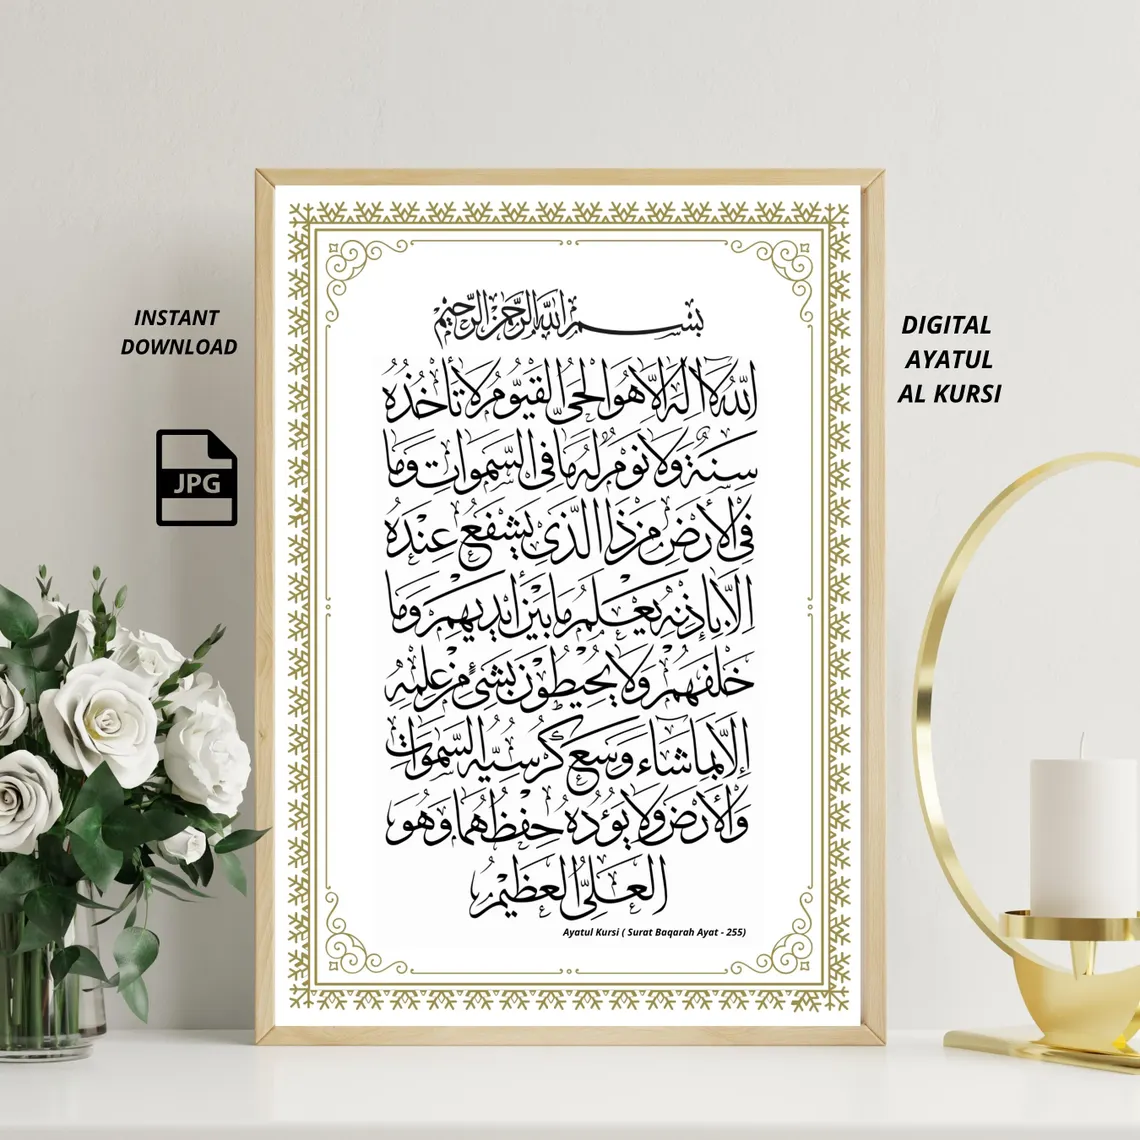 INSTANT
DOWNLOAD
JPG
DIGITAL
AYATUL
AL KURSI
بسم الله الرحمن الرحيم
الله لا إله إلا هو الحي القيوم لا تأخذه
سنة ولا نوم له ما في السموات وما
في الأرض من ذا الذي يشفع عنده
إلا بإذنه يعلم ما بين أيديهم وما
خلفهم ولا يحيطون بشيء من علمه
إلا بما شاء وسع كرسيه السموات
والأرض ولا يؤده حفظهما وهو
العلي العظيم
Ayatul Kursi ( Surat Baqarah Ayat - 255)